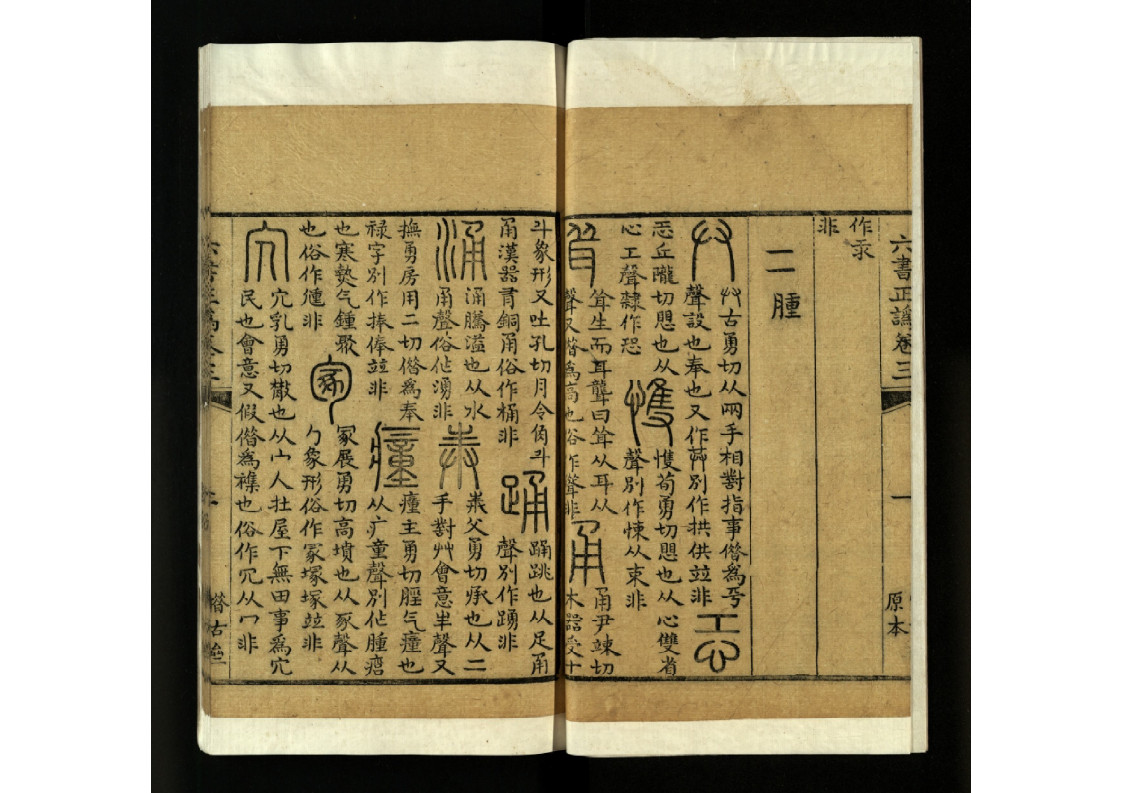 六書正譌卷三 一 原本
作汞
非
二腫
廾古勇切从兩手相對指事借爲丐
聲設也奉也又作 別作拱供竝非
恐
恐丘隴切思也从
心工聲隸作恐
愯
愯荀勇切思也从心雙省
聲別作悚从束非
耸
耸生而耳聾曰耸从耳从
聲又借爲高也俗作聳非
甬
甬尹竦切
木器受十
斗象形又吐孔切月令角斗
甬漢器有銅甬俗作桶非
踊
踊跳也从足甬
聲別作踴非
涌
涌騰溢也从水
甬聲俗作湧非
奉
奉父勇切承也从二
手對廾會意丰聲又
撫勇房用二切借爲奉
祿字別作捧俸竝非
瘇
瘇主勇切脛气瘇也
从疒童聲別作腫
也寒熱气鍾聚
也俗作尰非
冢
冢展勇切高墳也从豖聲从
勹象形俗作冡塚塜竝非
宂
宂乳勇切㪚也从宀人在屋下無田事爲宂
民也會意又假借爲襍也俗作冗从冖非
六書正譌卷三 二